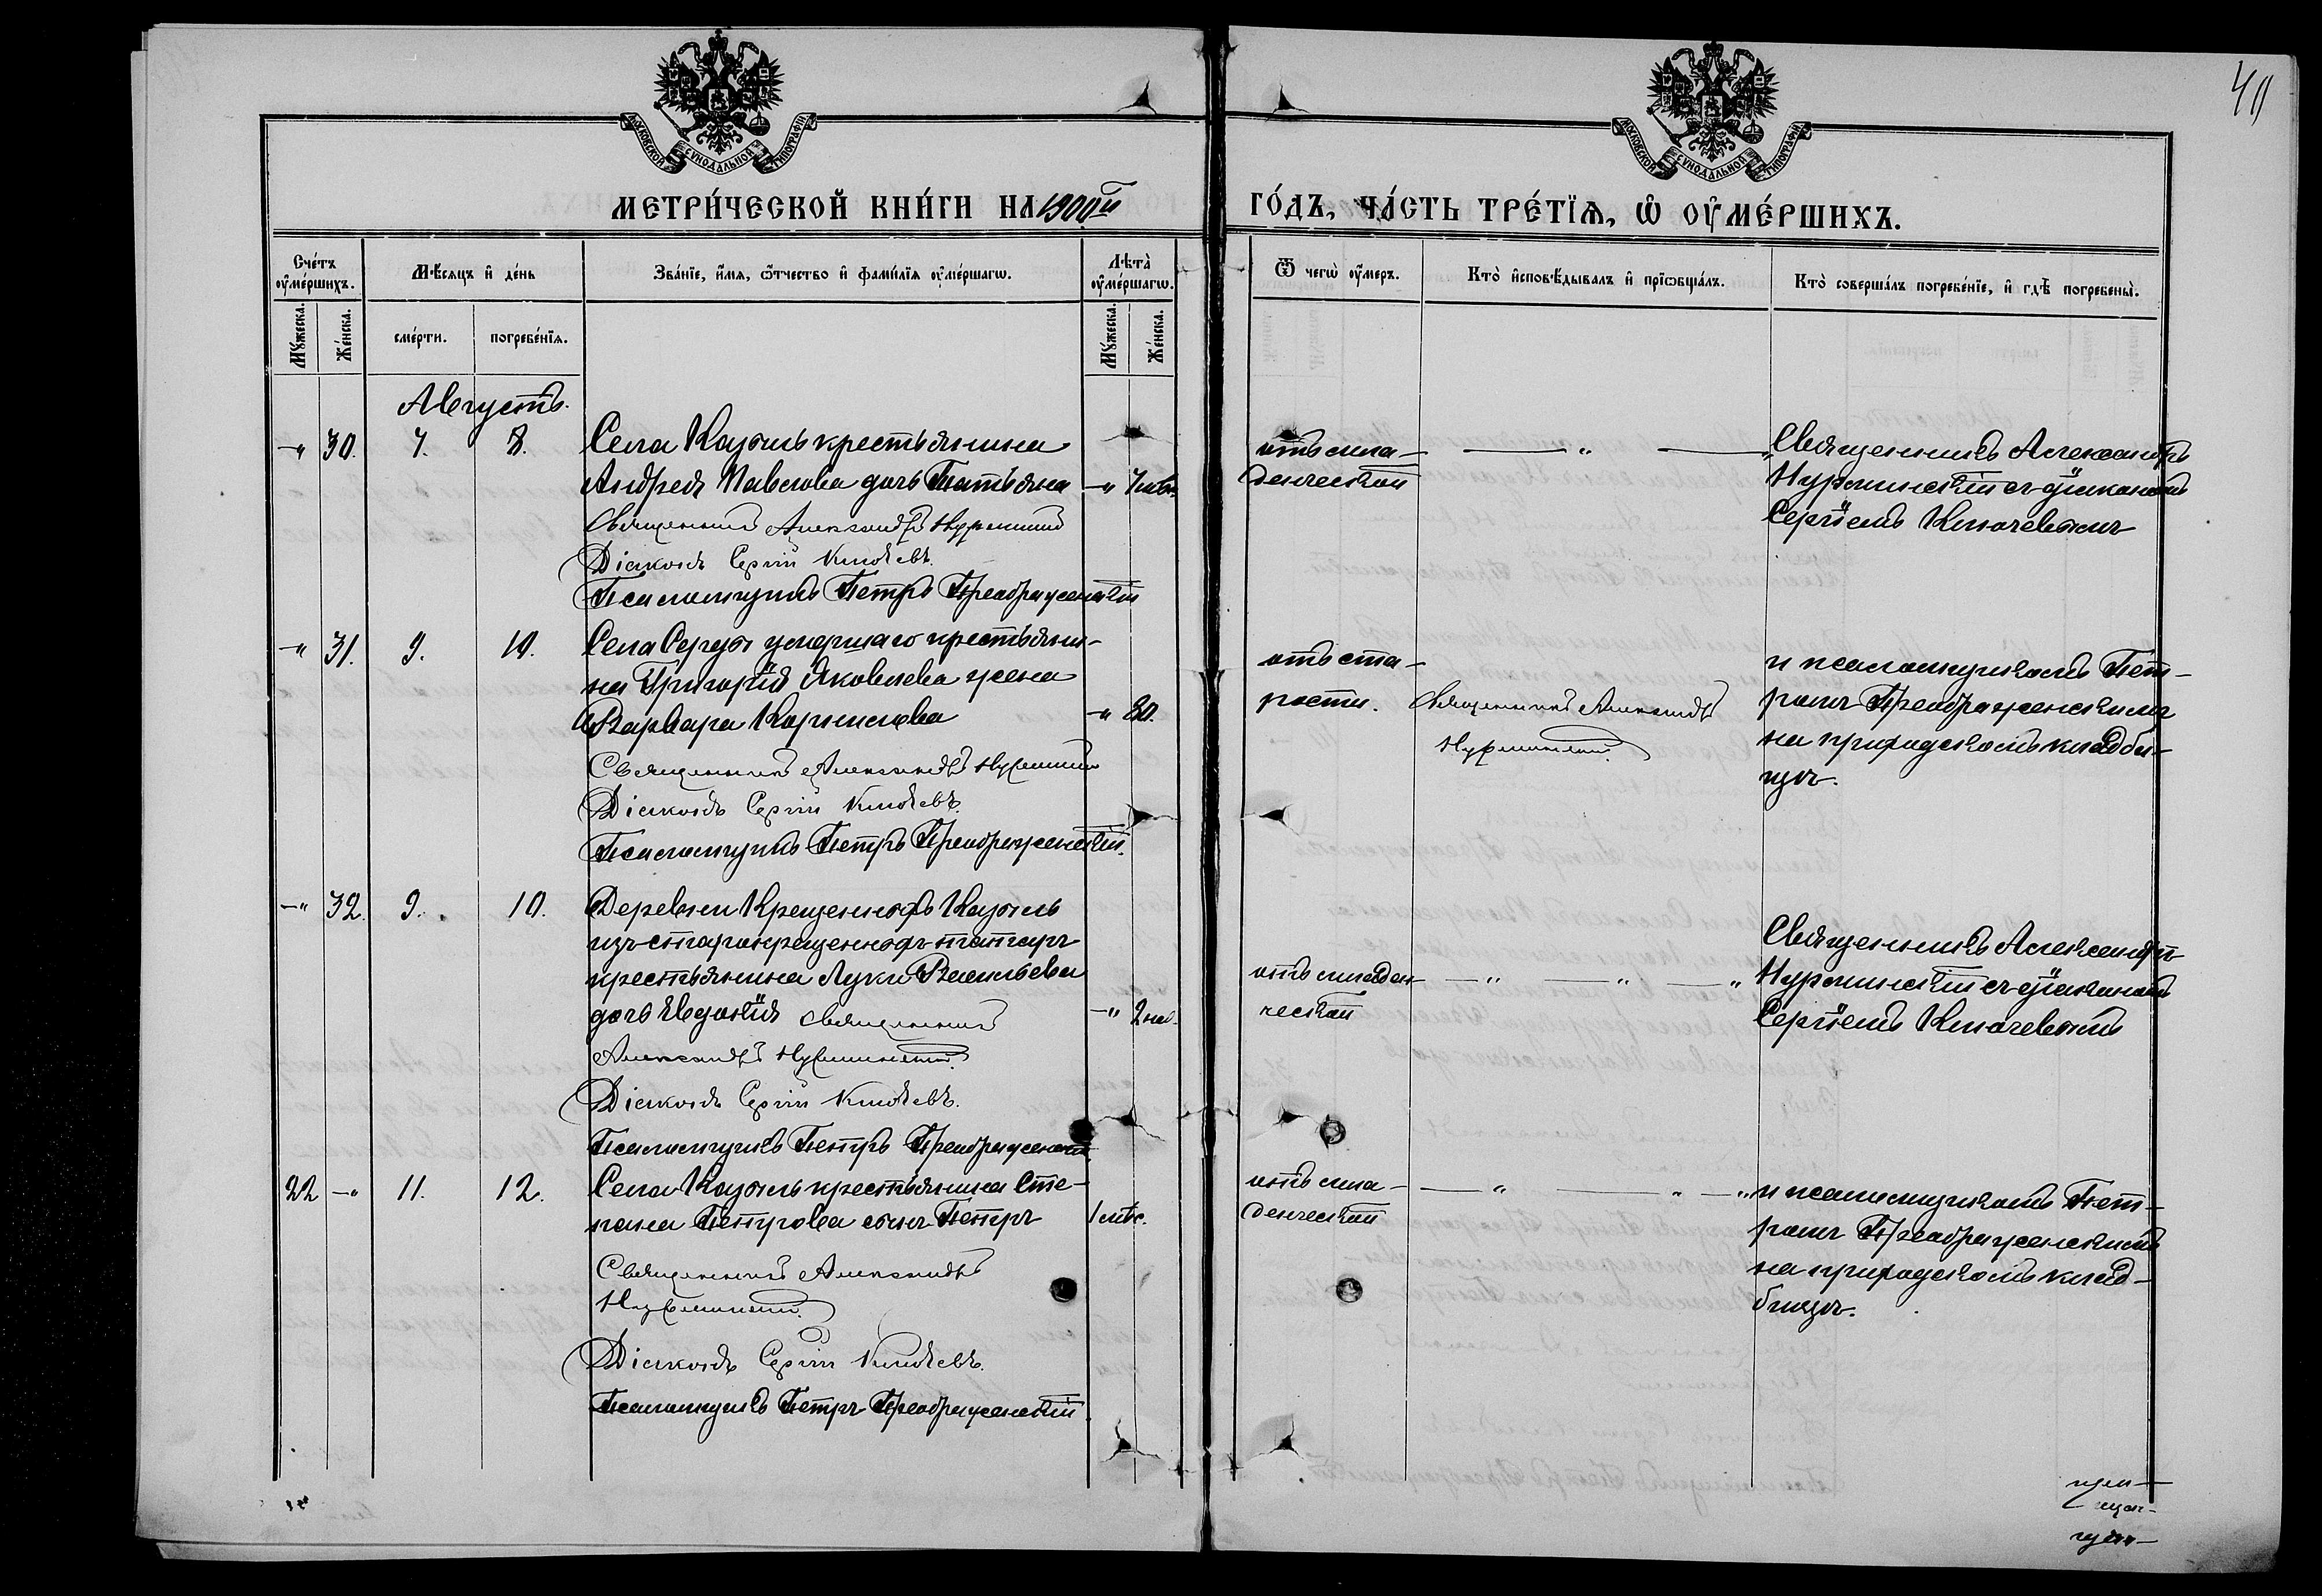 40
МОСКОВСКОЙ СѴНОДАЛЬНОЙ ТИПОГРАФІИ
МОСКОВСКОЙ СѴНОДАЛЬНОЙ ТИПОГРАФІИ
МЕТРИ́ЧЕСКОЙ КНИ́ГИ НА 1900й
ГО́ДЪ, ЧА́СТЬ ТРЕ́ТЇѦ, Ѡ҆ ОУ҆МЕ́РШИХЪ.
Сче́тъ оу҆ме́ршихъ.
Мꙋ́жеска.
Же́нска.
Мѣ́сяцъ и҆ де́нь
сме́рти.
погребе́нїѧ.
Зва́нїе, и҆́мѧ, ѻ҆́тчество и҆ фами́лїѧ оу҆ме́ршагѡ.
Лѣта̀ оу҆ме́ршагѡ.
Мꙋ́жеска.
Же́нска.
Ѿ чегѡ̀ оу҆́меръ.
Кто̀ и҆сповѣ́дывалъ и҆ прїѡбща́лъ.
Кто̀ соверша́лъ погребе́нїе, и҆ гдѣ̀ погребены̀.
Августъ.
-„ 30. 7. 8. Села Казыль крестьянина
Андрея Павлова дочь Татьяна -„ 7 мѣс.
Священникъ Александръ Нурминскій
Діаконъ Сергій Ключевъ.
Псаломщикъ Петръ Преображенскій
отъ мла-
денческой
Священникъ Александръ
Нурминскій съ діакономъ
Сергіемъ Ключевымъ
-„ 31. 9. 10. Села умершаго крестьяни-
на Григорія Яковлева жена
Варвара Корнилова -„ 80.
Священникъ Александръ Нурминскій
Діаконъ Сергій Ключевъ.
Псаломщикъ Петръ Преображенскій.
отъ ста-
рости.
Священникъ Александръ
Нурминскій.
и псаломщикомъ Пет-
ромъ Преображенскимъ
на приходскомъ кладби-
щѣ.
-„ 32. 9. 10. Деревни Крещенныхъ Казыль
изъ старокрещенныхъ татаръ
крестьянина Луки Васильева
дочь Евдокія Священникъ -„ 2 нед.
Александръ Нурминскій.
Діаконъ Сергій Ключевъ.
Псаломщикъ Петръ Преображенскій.
отъ младен-
ческой
Священникъ Александръ
Нурминскій съ діакономъ
Сергіемъ Ключевымъ
22 -„ 11. 12. Села Казыль крестьянина Сте-
пана Петрова сынъ Петръ 1 мѣс.
Священникъ Александръ
Нурминскій.
Діаконъ Сергій Ключевъ.
Псаломщикъ Петръ Преображенскій
отъ мла-
денческой
и псаломщикомъ Пет-
ромъ Преображенскимъ
на приходскомъ клад-
бищѣ.